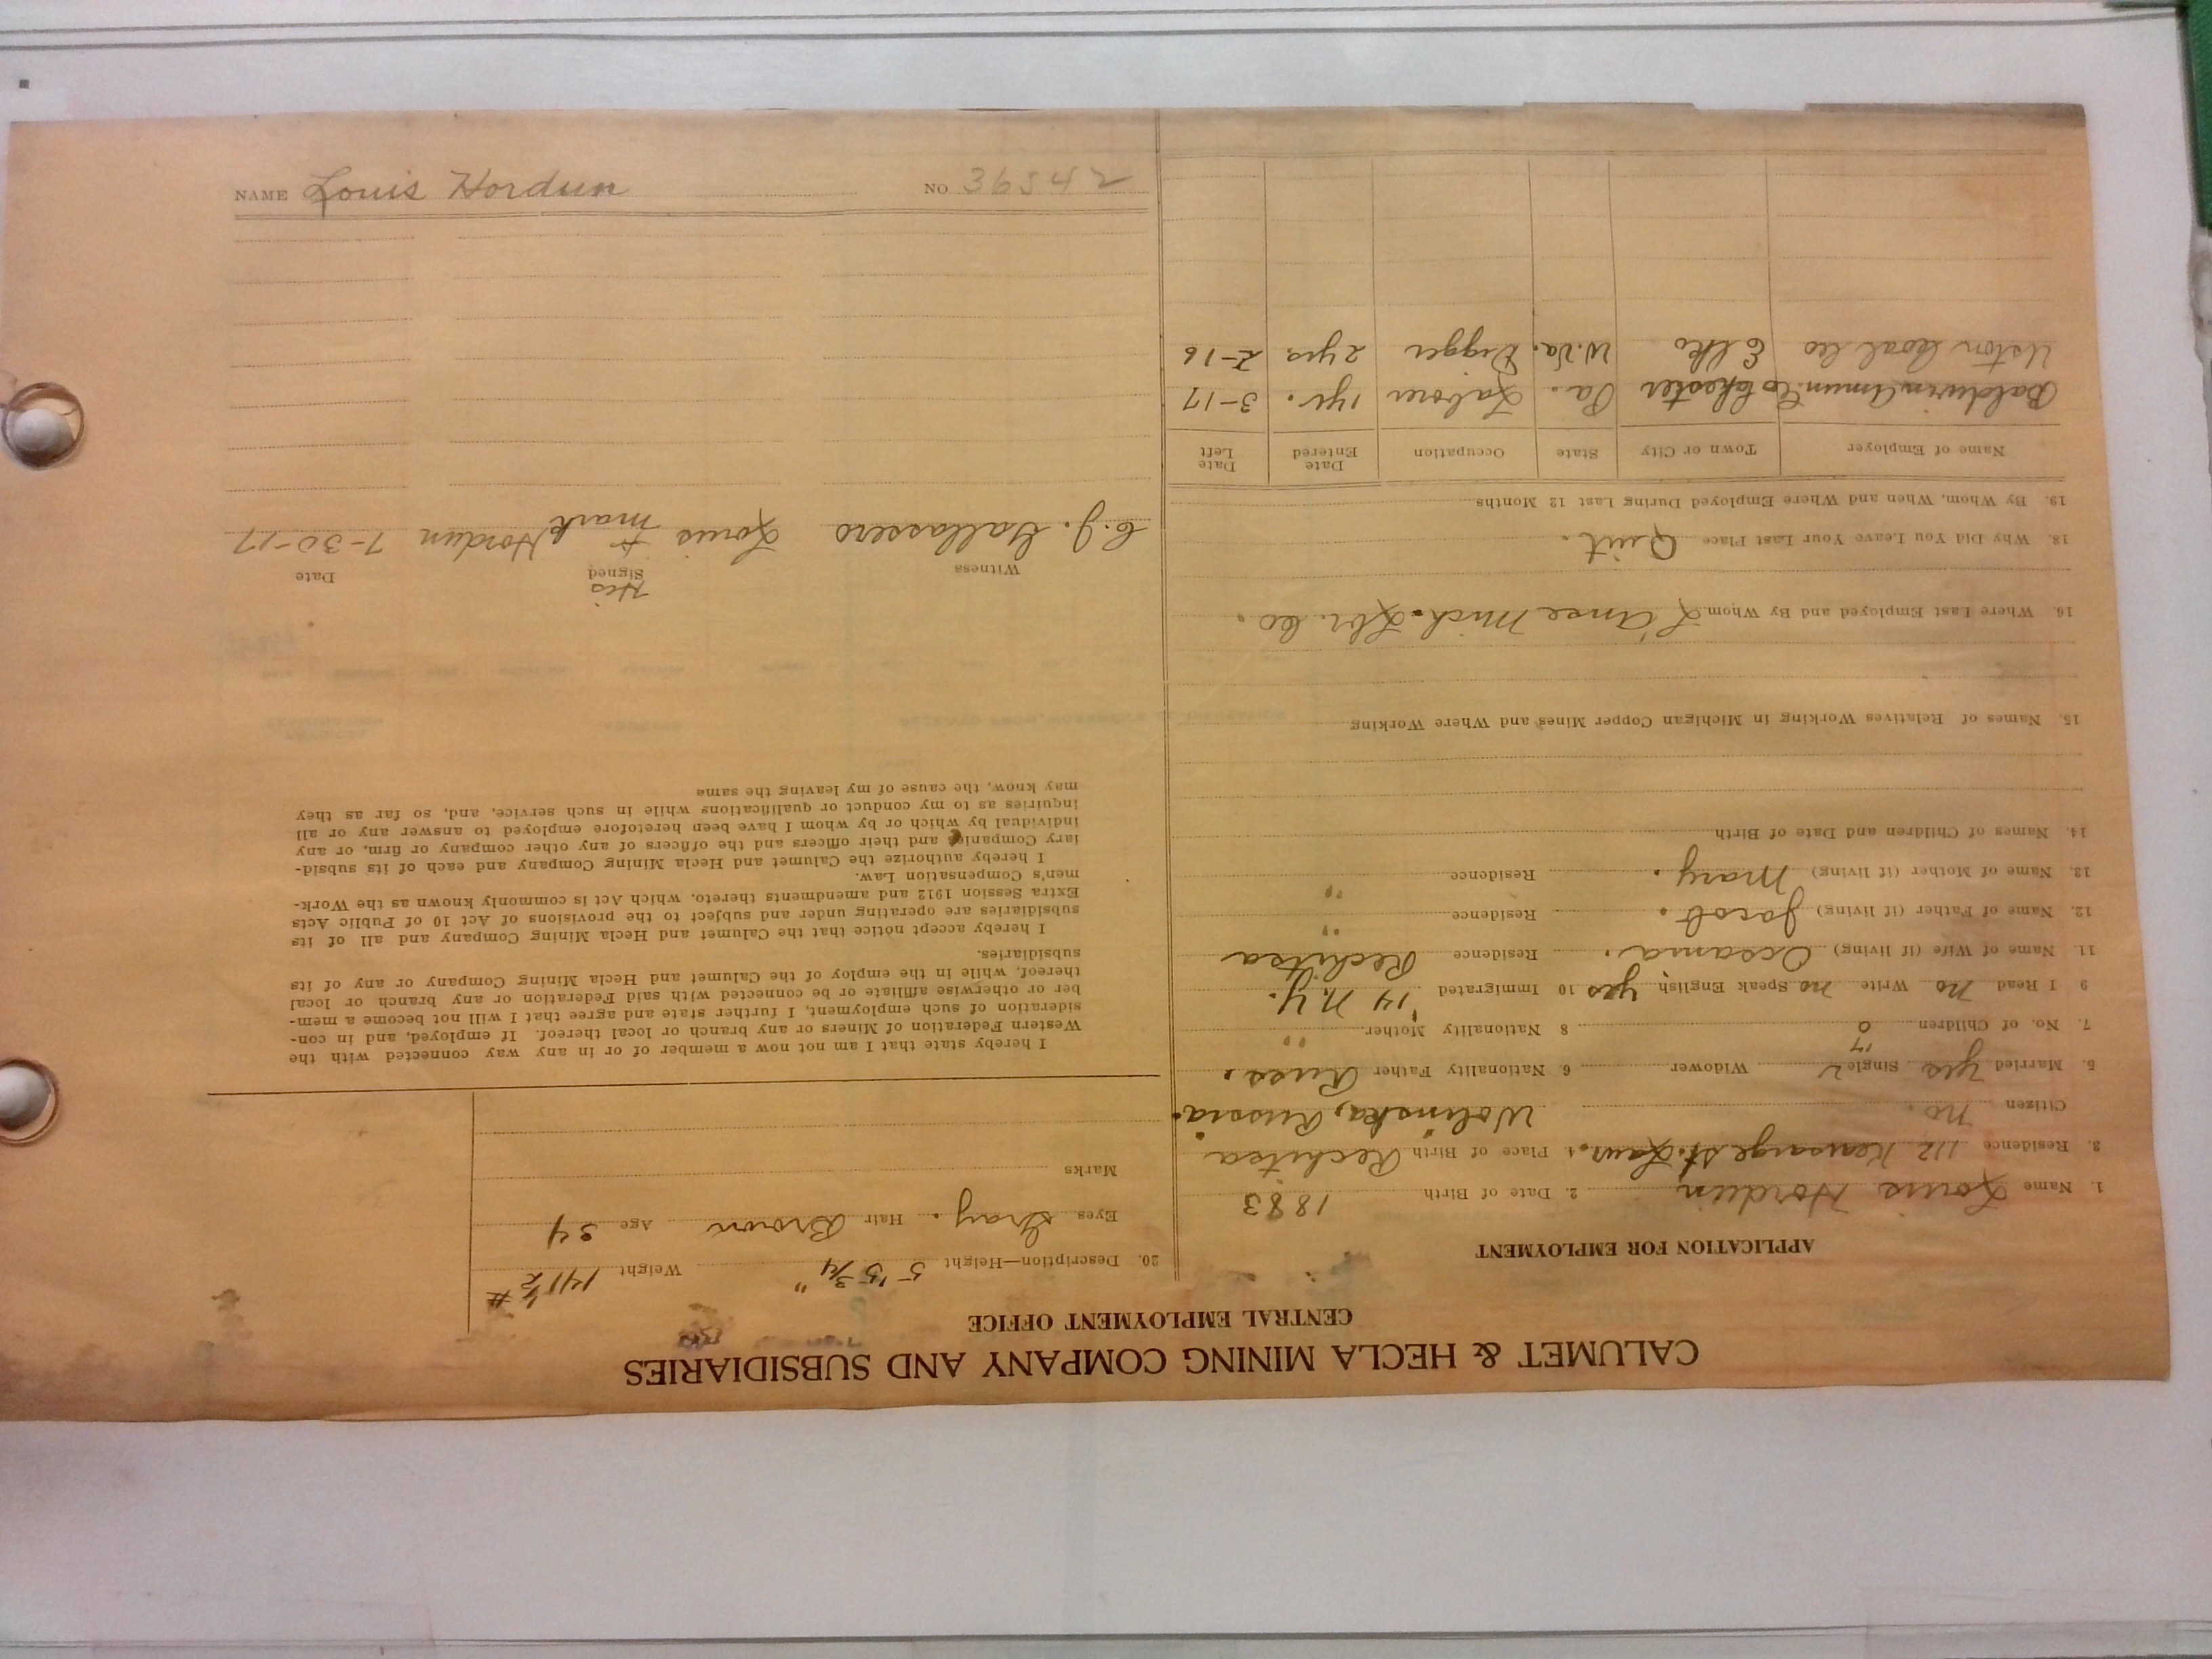 CALUMET & HECLA MINING COMPANY AND SUBSIDIARIES
CENTRAL EMPLOYMENT OFFICE
APPLICATION FOR EMPLOYMENT
1. Name Louis Hordun 2. Date of Birth 1883
3. Residence 112 Kearsarge St. Laur. 4. Place of Birth Rechitsa
Citizen no. Wolinska, Russia.
5. Married yes Single Widower 6. Nationality Father Russ.
7. No. of Children 0 8 Nationality Mother " "
9 I Read no Write no Speak English yes 10 Immigrated '14 N.Y.
11. Name of Wife (if living) Ocsanna. Residence Rechitsa
12. Name of Father (if living) Jacob. Residence " "
13. Name of Mother (if living) Mary. Residence " "
14. Names of Children and Date of Birth
15. Names of Relatives Working in Michigan Copper Mines and Where Working
16. Where Last Employed and By Whom L'Anse Mich. Lbr. Co.
18. Why Did You Leave Your Last Place Quit.
19. By Whom, When and Where Employed During Last 12 Months
Name of Employer Town or City State Occupation Date Entered Date Left
Baldwin Amun. Co Chester Pa. Laborer 1 yr. 3-17
Uston Coal Co Elko W.Va. Digger 2 yrs. 2-16
20. Description—Height 5' 5 3/4" Weight 141 1/2 #
Eyes Gray. Hair Brown Age 34
Marks
I hereby state that I am not now a member of or in any way connected with the
Western Federation of Miners or any branch or local thereof. If employed, and in con-
sideration of such employment, I further state and agree that I will not become a mem-
ber or otherwise affiliate or be connected with said Federation or any branch or local
thereof, while in the employ of the Calumet and Hecla Mining Company or any of its
subsidiaries.
I hereby accept notice that the Calumet and Hecla Mining Company and all of its
subsidiaries are operating under and subject to the provisions of Act 10 of Public Acts
Extra Session 1912 and amendments thereto, which Act is commonly known as the Work-
men's Compensation Law.
I hereby authorize the Calumet and Hecla Mining Company and each of its subsid-
iary Companies and their officers and the officers of any other company or firm, or any
individual by which or by whom I have been heretofore employed to answer any or all
inquiries as to my conduct or qualifications while in such service, and, so far as they
may know, the cause of my leaving the same
Witness Signed Date
His
C.J. Gallassero Louis Hordun 7-30-17
mark
NAME Louis Hordun NO 36542